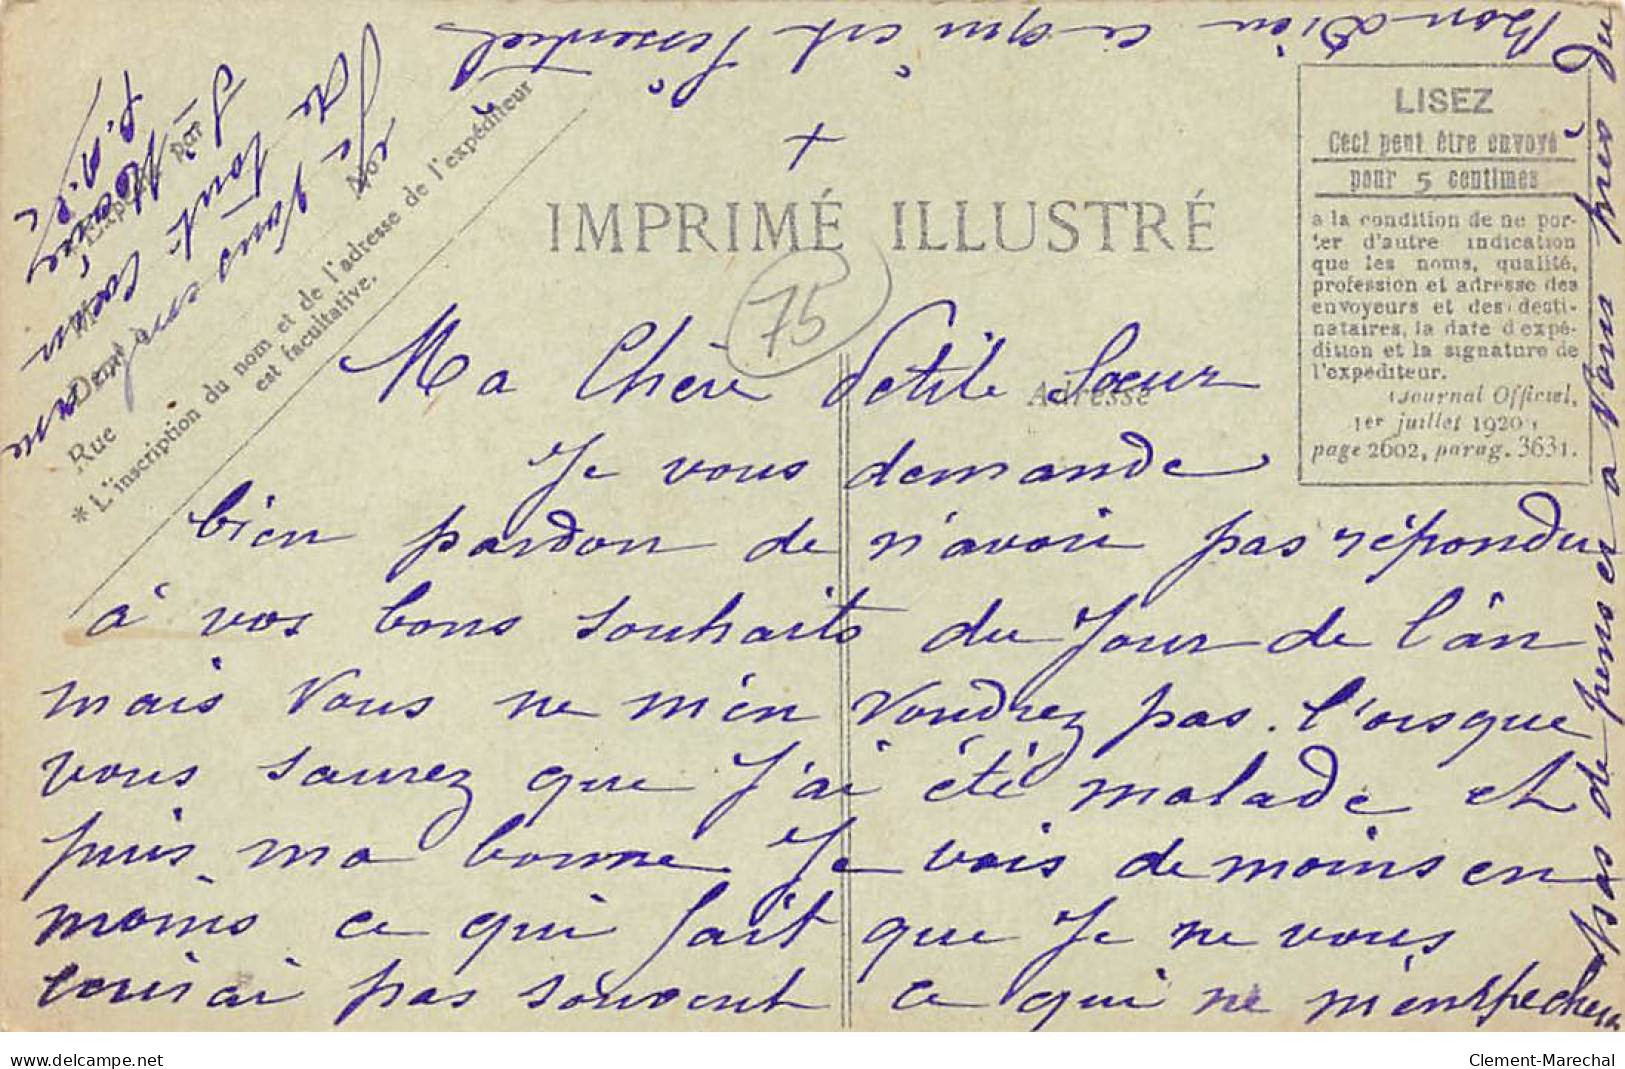 +
IMPRIMÉ ILLUSTRÉ
75
LISEZ
Ceci peut être envoyé
pour 5 centimes
a la condition de ne por-
ter d'autre indication
que les noms, qualité,
profession et adresse des
envoyeurs et des desti-
nataires, la date d'expé-
dition et la signature de
l'expéditeur.
Journal Officiel,
1er juillet 1920,
page 2602, parag. 3631.
Expédié par
No
Rue
Dem
* L'inscription du nom et de l'adresse de l'expéditeur
est facultative.
Adresse
Ma Chère Petite Soeur
Je vous demande
bien pardon de n'avoir pas répondu
à vos bons souhaits du Jour de l'àn
mais Vous ne m'en voudrez pas. l'orsque
vous saurez que J'ai été malade et
puis ma bonne Je vois de moins en
moins ce qui fait que Je ne vous
ecuirai pas souvent ce qui ne m'enspechera
pas de penser a Vous près du
Bon Dieu ce qui est l'essentiel
Je Vous
de tout Coeur
S Marie
delivrcampe.net
Clement-Marechal